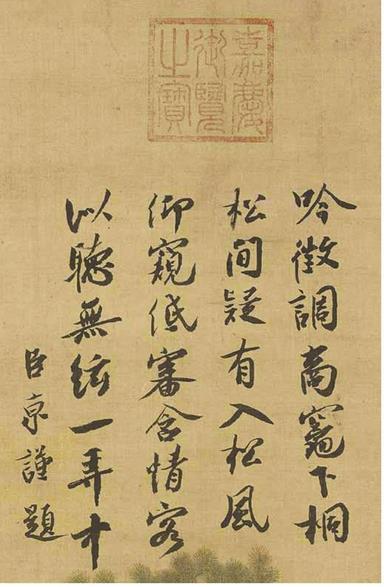 嘉慶御覽之寶
吟徵調商竈下桐
松間疑有入松風
仰窺低審含情客
以聽無絃一弄中
臣京謹題